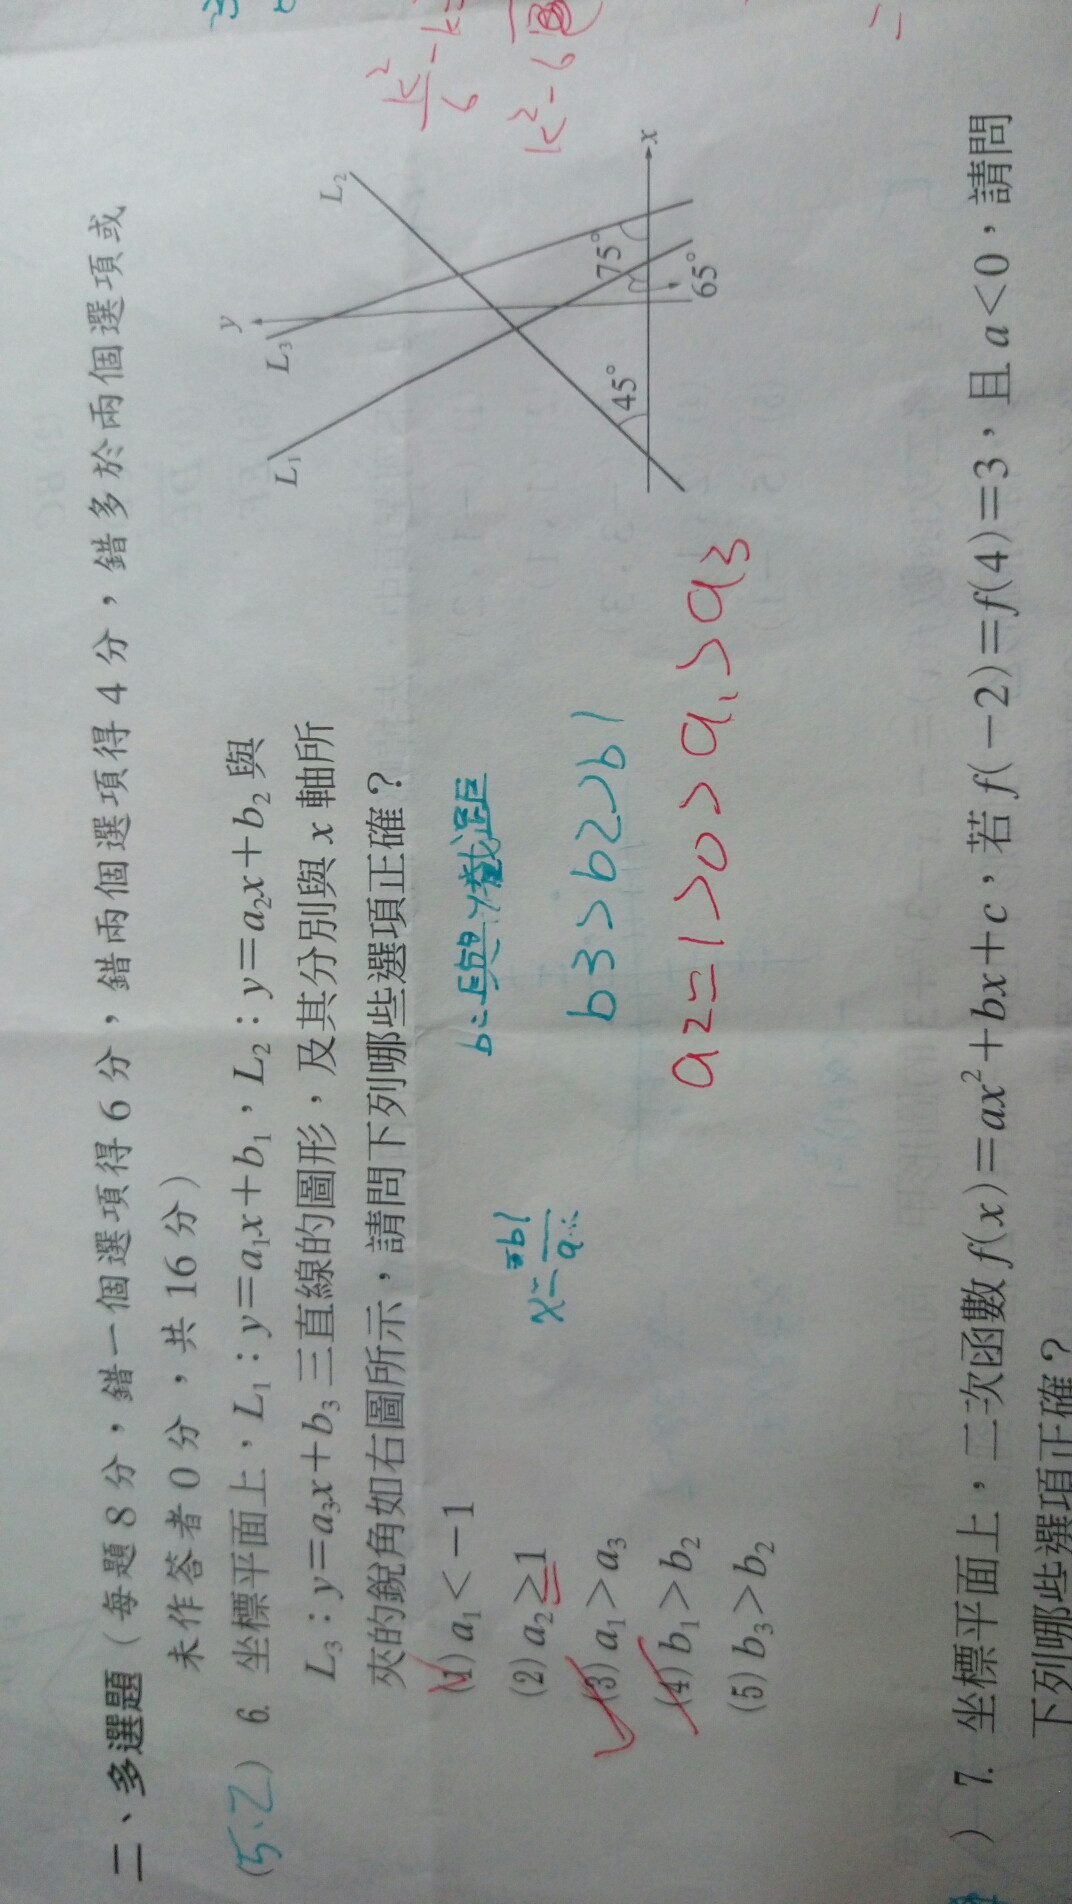 二、多選題（每題 8 分，錯一個選項得 6 分，錯兩個選項得 4 分，錯多於兩個選項或
未作答者 0 分，共 16 分）
(5、2) 6. 坐標平面上，L₁：y＝a₁x＋b₁，L₂：y＝a₂x＋b₂ 與
L₃：y＝a₃x＋b₃ 三直線的圖形，及其分別與 x 軸所
夾的銳角如右圖所示，請問下列哪些選項正確？
(1) a₁＜－1
(2) a₂≥1
(3) a₁＞a₃
(4) b₁＞b₂
(5) b₃＞b₂
b=與y截距
x=-b1/a
b3>b2>b1
a2=1>0>a1>a3
L₁
L₃
y
L₂
45°
75°
65°
x
k²/6
k²-6
) 7. 坐標平面上，二次函數 f(x)＝ax²＋bx＋c，若 f(－2)＝f(4)＝3，且 a＜0，請問
下列哪些選項正確？